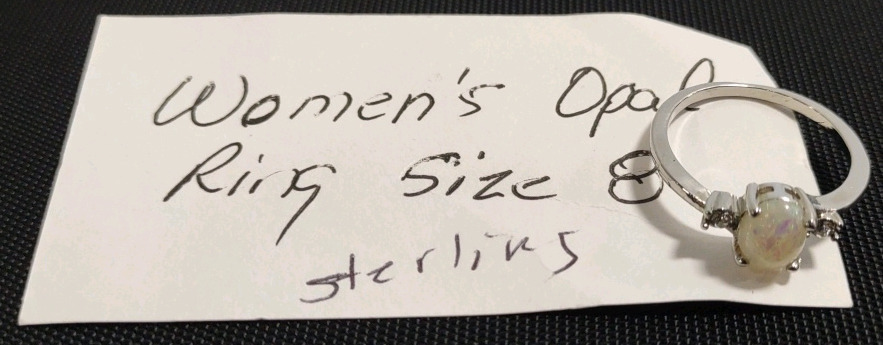 Women's Opal
Ring Size 8
sterling